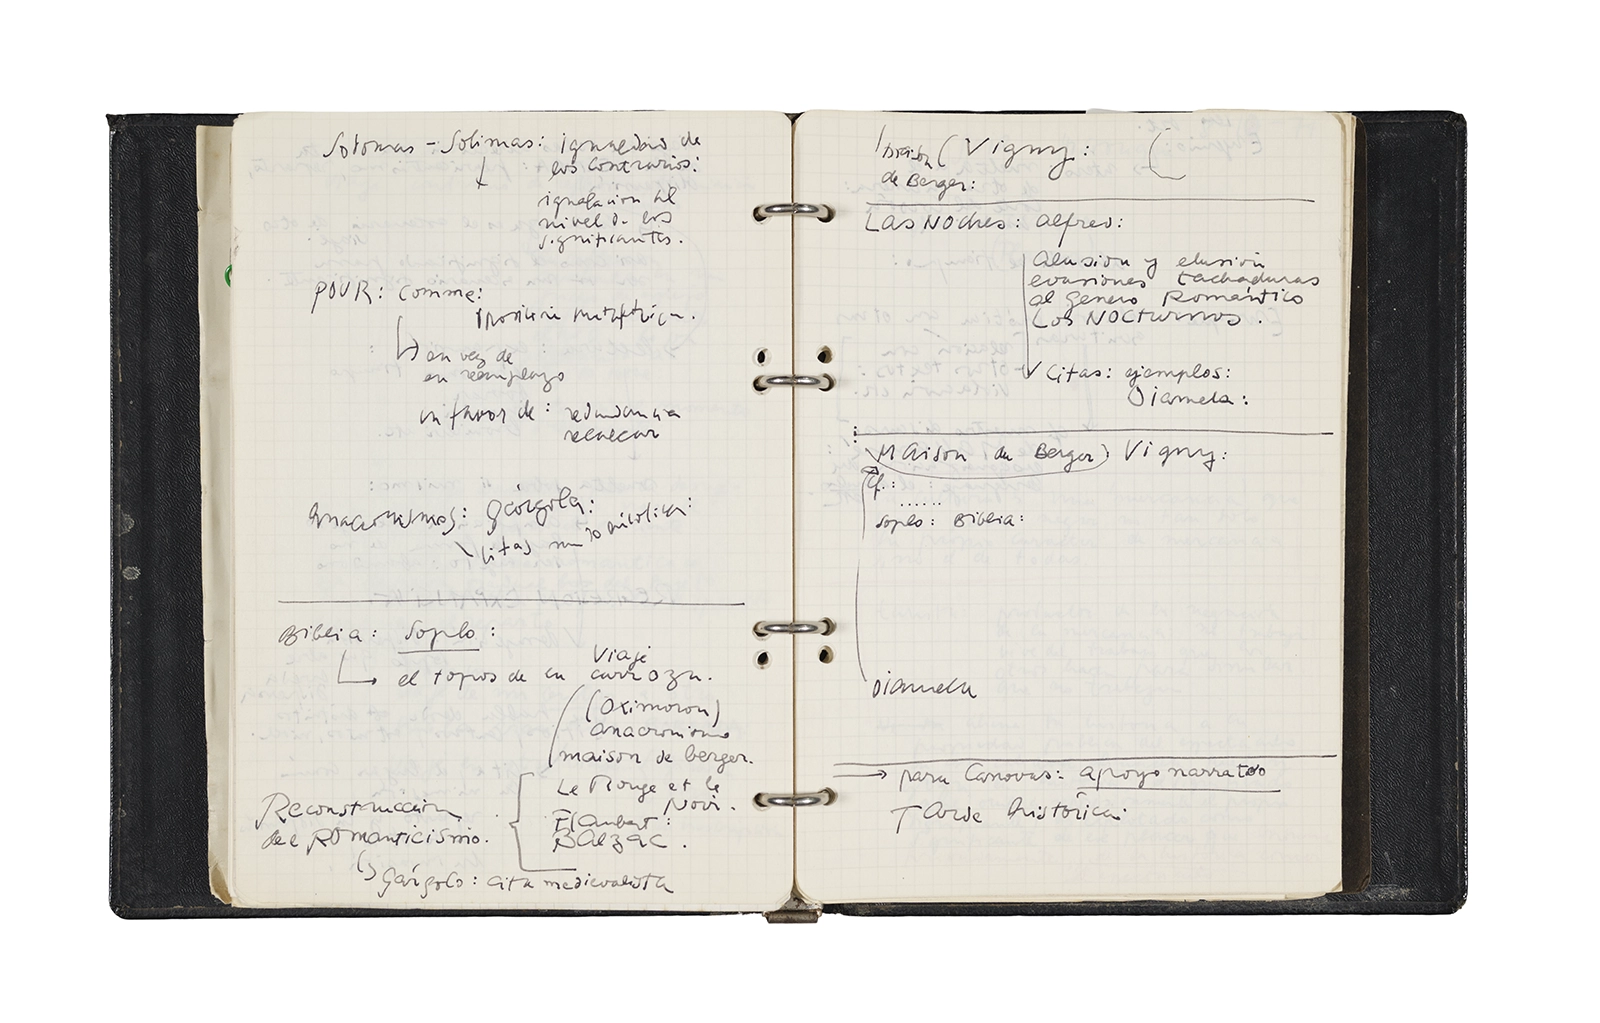 Sotomas - Solimas: igualdad de
los contrarios:
igualación al
nivel d. los
significantes.
POUR: Comme:
en vez de
en reemplazo
en favor de: redundancia
Anacronismos: Gárgola:
Citas
Biblia: Soplo:
Viaje
el topos de en carroza.
(Oximoron)
anacronismo
maison de berger.
Le Rouge et le
Noir.
Reconstrucción
del Romanticismo.
Flaubert:
Balzac.
Gárgola: cita medievalista
(Vigny: (
de Berger:
Las Noches: Alfred:
Alusión y elusión
evasiones tachaduras
al Genero Romántico
Los NOCTURNOS.
Citas: ejemplos:
Diamela:
Maison du Berger) Vigny:
Cf.:
......
Soplo: Biblia:
Diamela
para Canovas: apoyo narrativo
Tarde histórica: